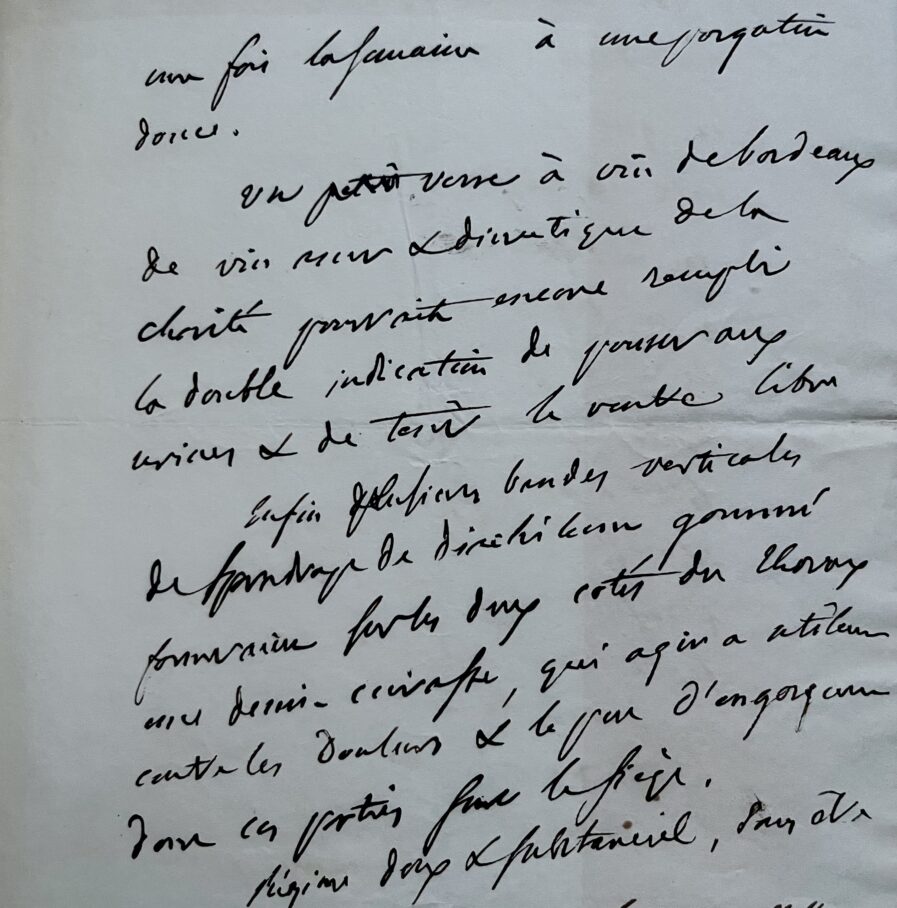 une fois la semaine à une purgation
douce.
Un petit verre à vin de bordeaux
de vin amer & diuretique de la
charité pourrait encore remplir
la double indication de pousser aux
urines & de tenir le ventre libre
Enfin plusieurs bandes verticales
de sparadrap de diachilum gommé
formeraient sur les deux cotés du thorax
une demi-cuirasse, qui agira utilement
contre les douleurs & le peu d'engorgement
dont ces parties sont le siège.
Régime doux & substantiel, sans être